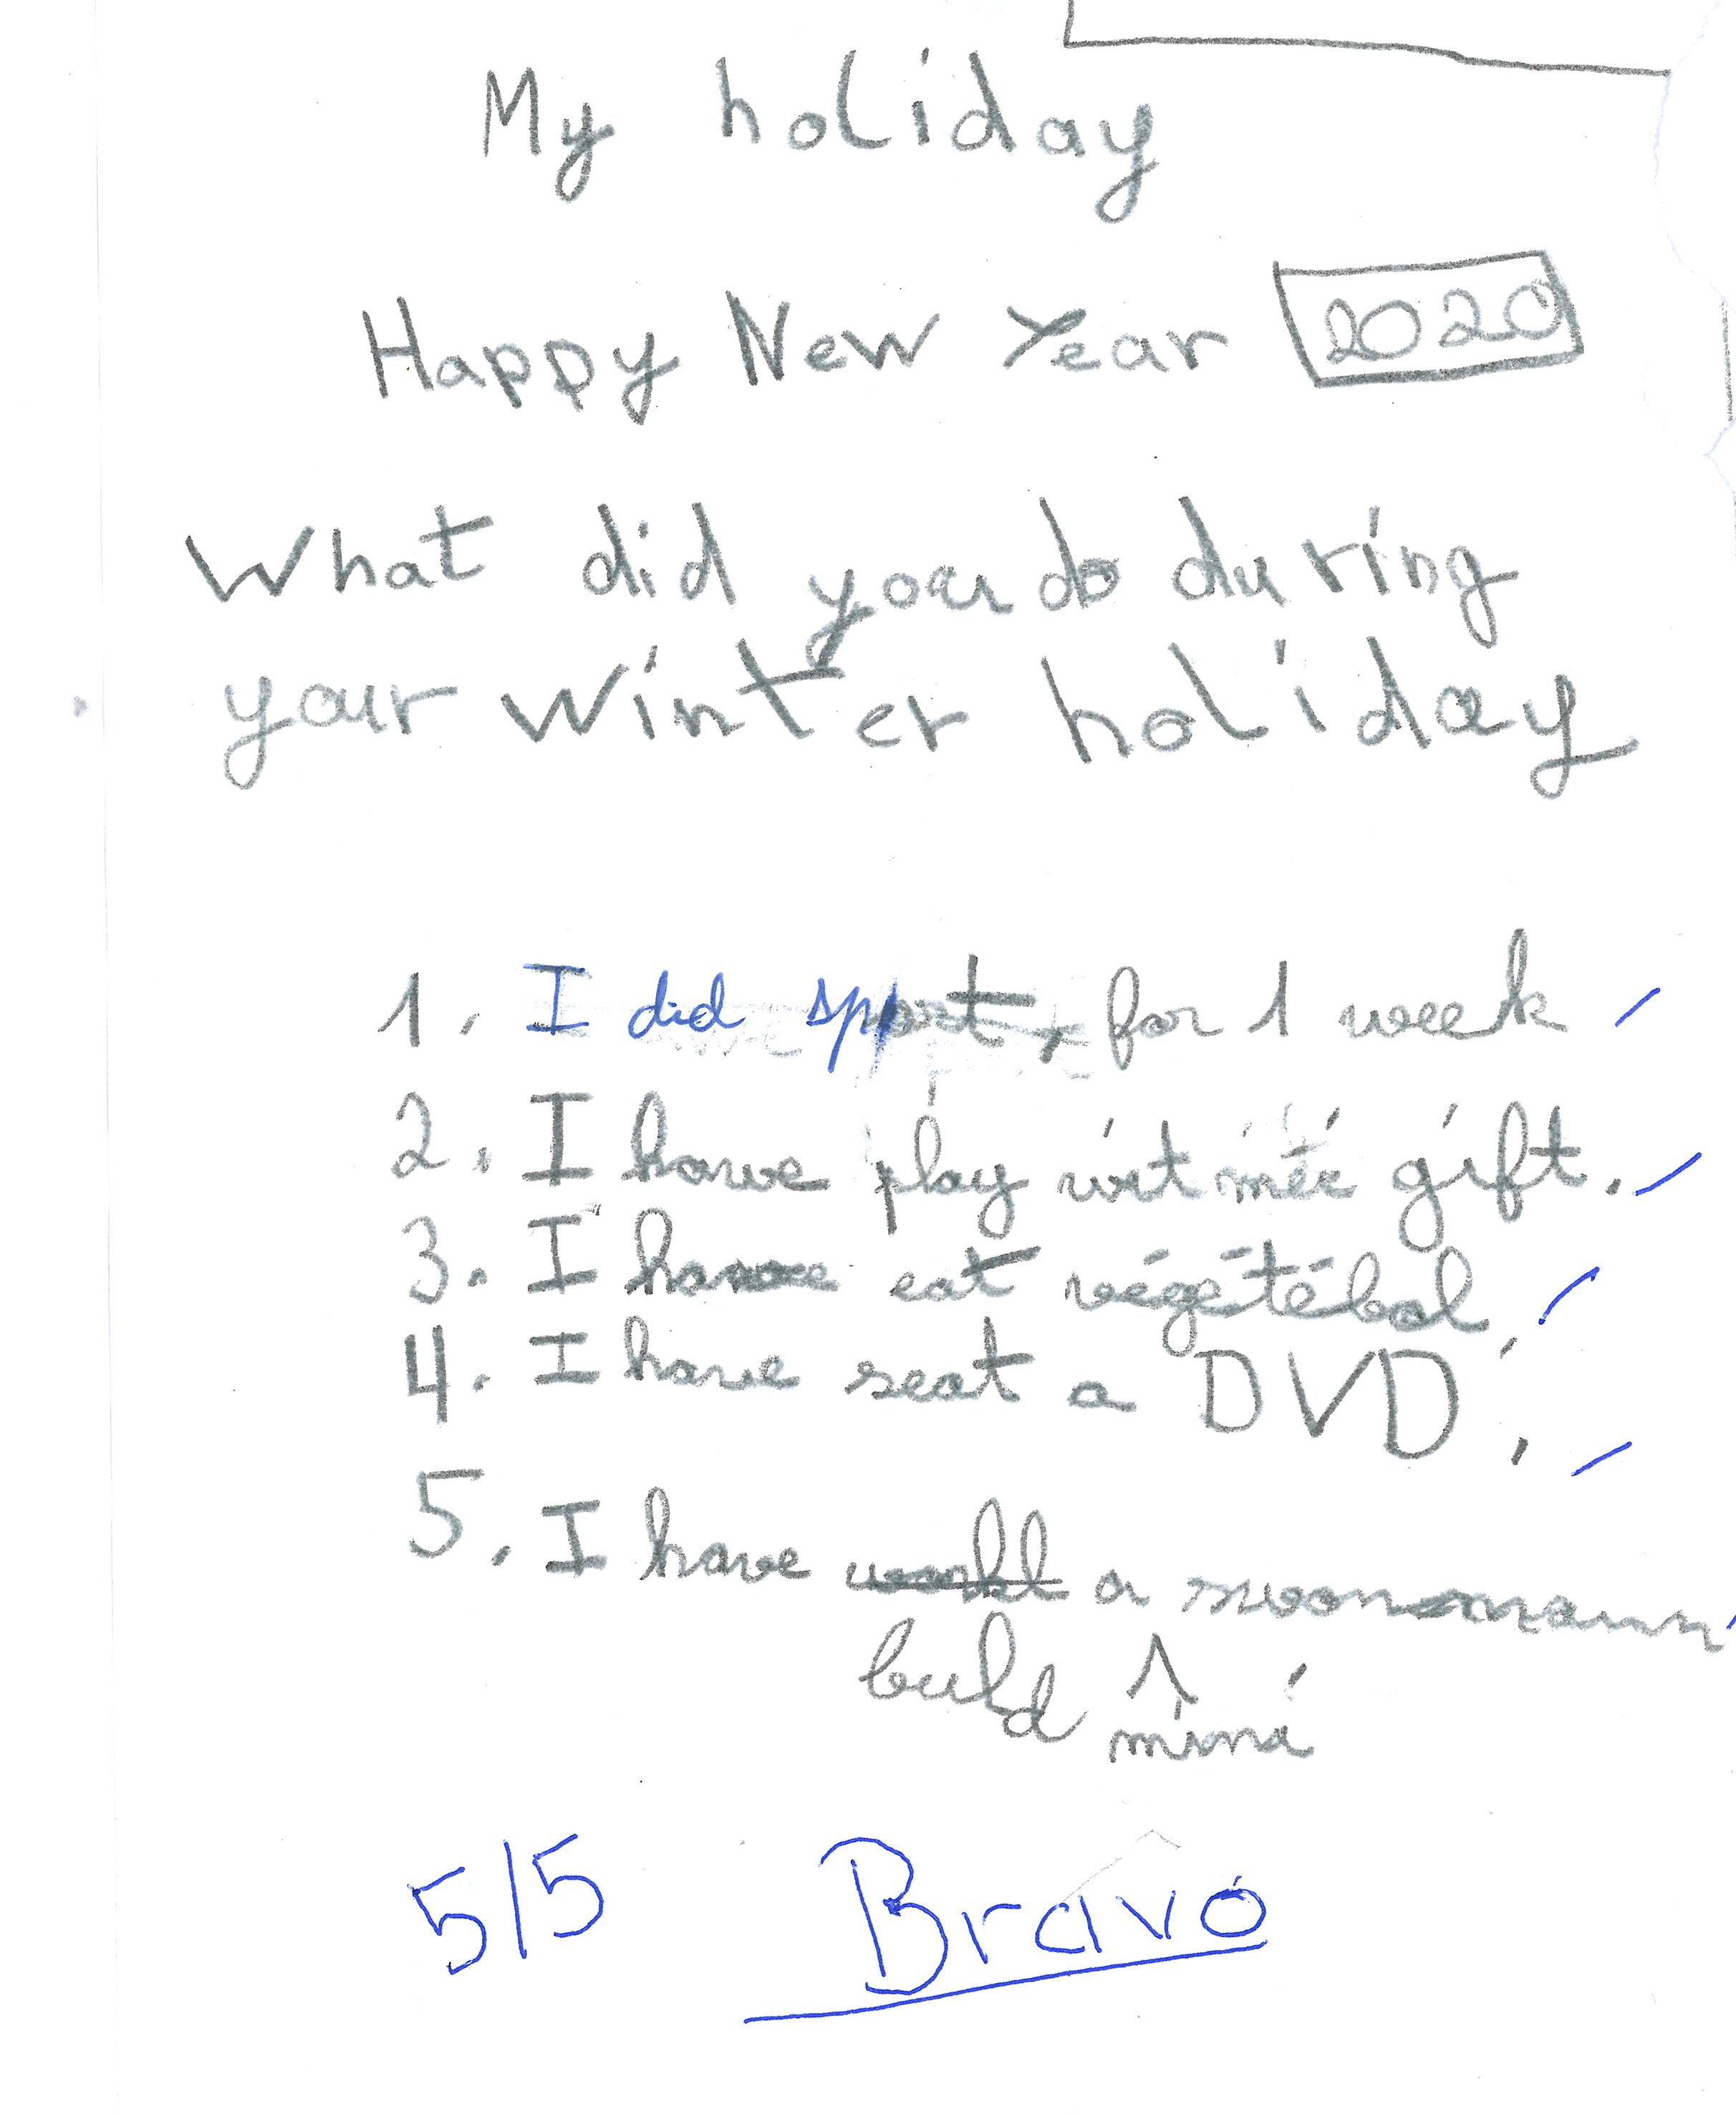 My holiday
Happy New Year 2020
What did you do during
your winter holiday
1. I did sport, for 1 week
2. I have play wit gift.
3. I have eat végétébol.
4. I have seat a DVD.
5. I have a snoonmann
build mini
5/5 Bravo